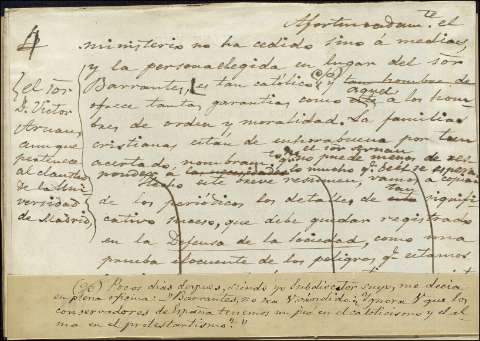 4
Afortunadamte. el
ministerio no ha cedido sino á medias,
y la persona elegida en lugar del sór
Barrantes, es tan católico, y tan hombre de
ofrece tantas garantias como aquel á los hom
bres de orden y moralidad. La familias
cristianas estan de enhorabuena por tan
acertado nombramto
no puede menos de res-
ponder á lo mucho q. debe esperar
Hecho este breve resumen, vamos á copiar
de los periódicos los detalles de tan signifi
cativo suceso, que debe quedar registrado
en la Defensa de la Sociedad, como una
prueba elocuente de los peligros q. estamos
el sór
D. Victor
Arnau,
aunque
pertenece
al claustro
de la Uni
versidad
de Madrid,
(26) Pocos dias despues, siendo yo Subdirector suyo, me decia
en plena oficina: "Barrantes, no sea V. cándido: ¿Ignora V. que los
conservadores de España tenemos un pie en el catolicismo y el al
ma en el protestantismo?"